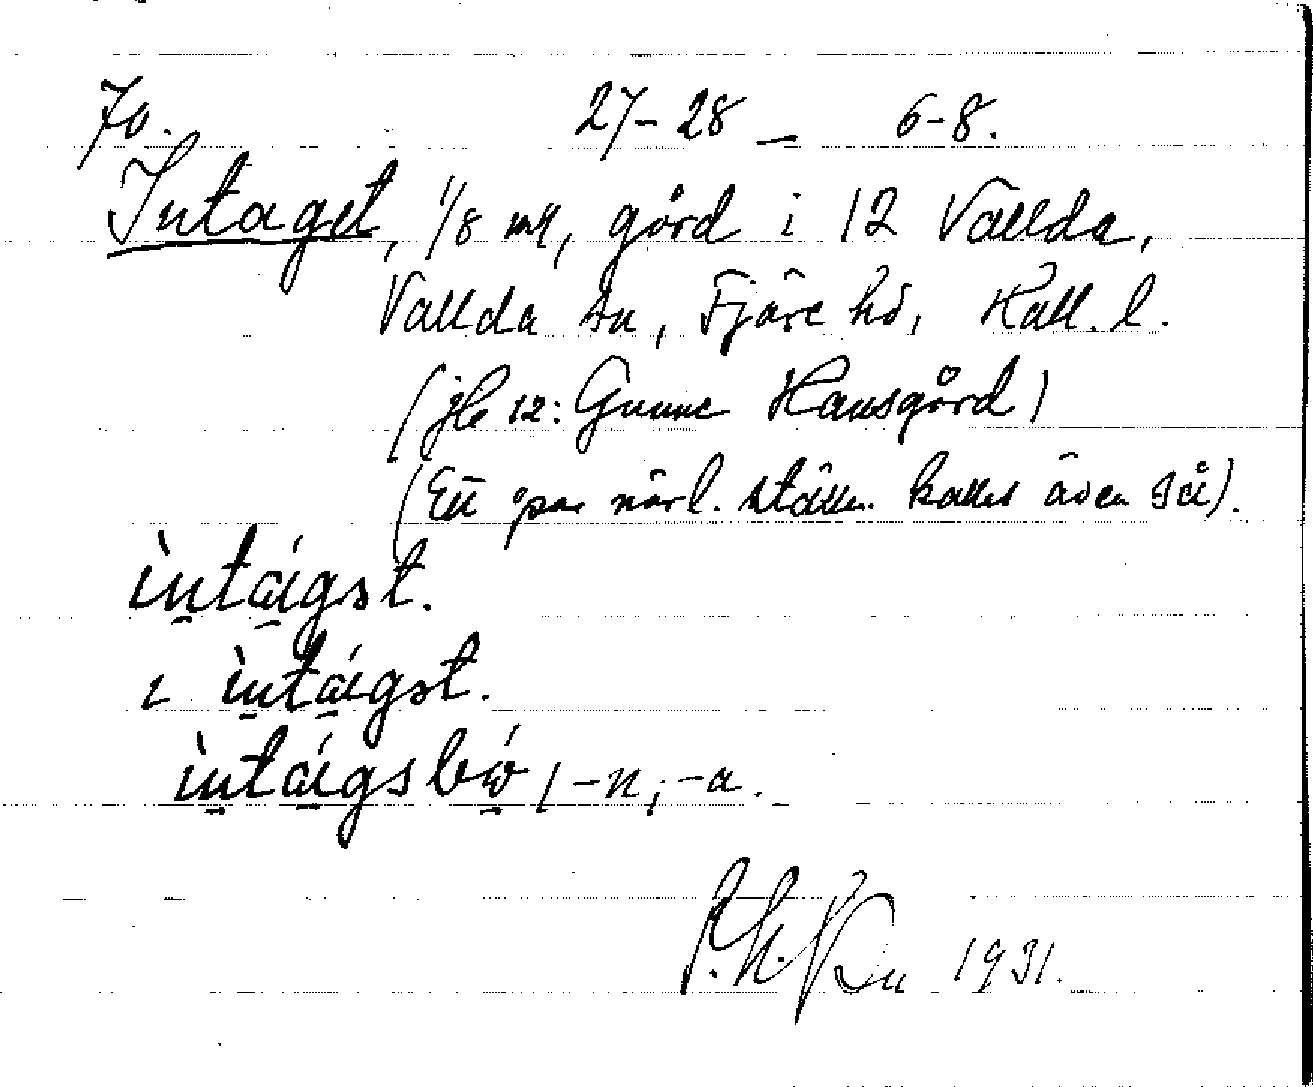 70. 27-28 _ 6-8.
Intaget, 1/8 mtl, gård i 12 Vallda,
Vallda sn, Fjäre hd, Hall. l.
(jfr 12: Gunne Hansgård)
(Ett par närl. ställen kallas även så).
ìntáigst.
ɩ ìntáigst.
ìntáigsbó, -n, -a.
1931.